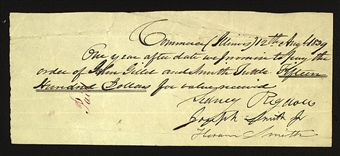 Commerce (Illinois) 12th Aug 1839
One year after date we promise to pay the
order of John Gillet and Smith Tuttle Fifteen
Hundred Dollars for value received
Sidney Rigdon
Joseph Smith Jr
Hiram Smith